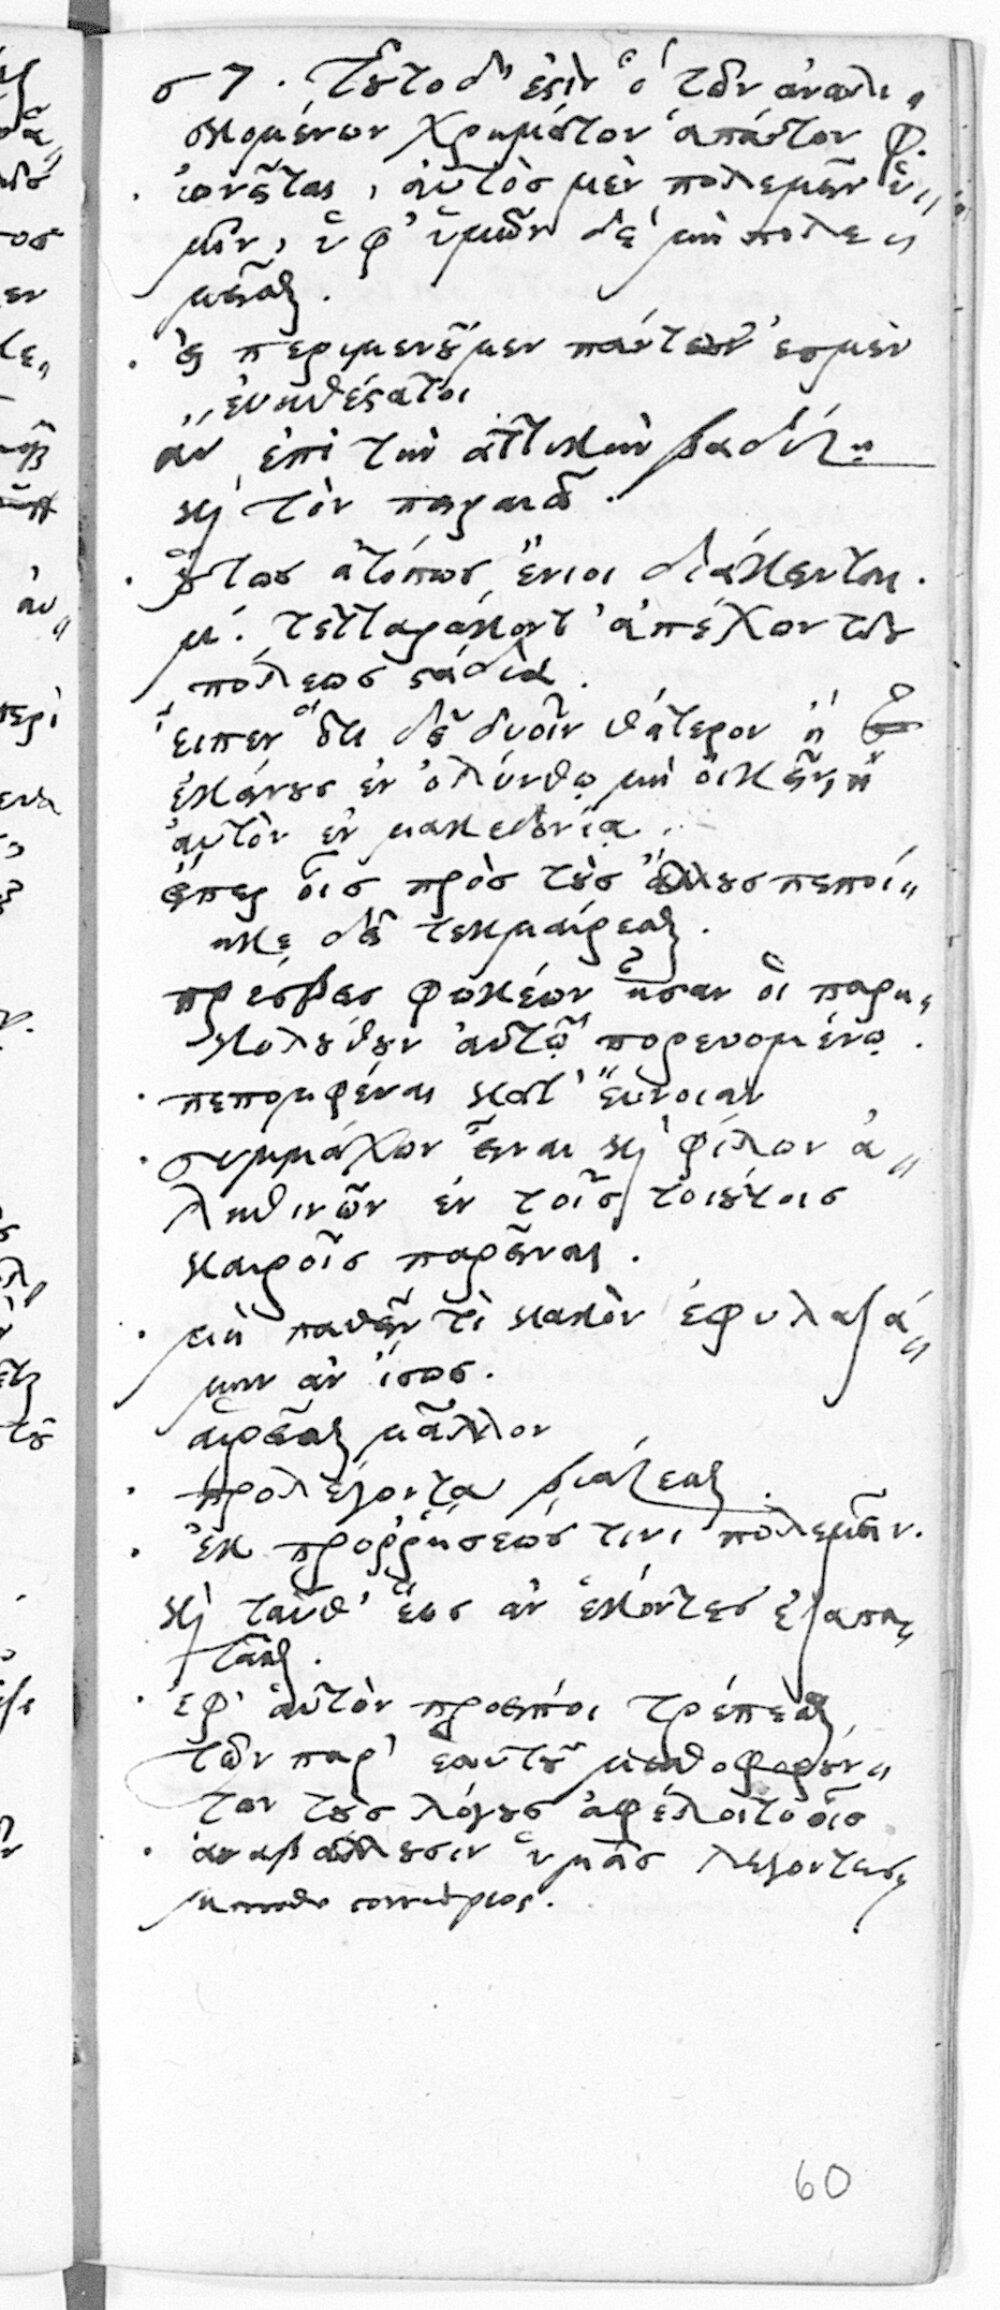 σ 7 . τοῦτο δ' ἐστὶν ὁ τῶν ἀναλι„
σκομένων χρημάτων ἁπάντων Φ.
. ὠνεῖται, αὐτὸς μὲν πολεμεῖν ὑ„
μῖν, ὑφ' ὑμῶν δὲ μὴ πολε„
μεῖσθαι.
. εἰ περιμενοῦμεν πάντων ἐσμὲν
„ εὐηθέστατοι
ἂν ἐπὶ τὴν ἀττικὴν βαδίζῃ
καὶ τὸν πειραιᾶ .
. οὕτως ἀτόπως ἔνιοι διάκεινται.
μ . τετταράκοντ' ἀπέχων τῆς
πόλεως στάδια .
εἶπεν ὅτι δεῖ δυοῖν θάτερον ἢ
ἐκείνους ἐν ὀλύνθῳ μὴ οἰκεῖν, ἢ
αὑτὸν ἐν μακεδονίᾳ .
εἴπερ οἷς πρὸς τοὺς ἄλλους πεποί„
ηκε δεῖ τεκμαίρεσθαι .
πρέσβεις φωκέων ἦσαν οἱ παρη„
κολούθουν αὐτῷ πορευομένῳ .
. πεπομφέναι κατ' εὔνοιαν
. συμμάχων εἶναι καὶ φίλων ἀ„
ληθινῶν ἐν τοῖς τοιούτοις
καιροῖς παρεῖναι .
. μὴ παθεῖν τι κακὸν ἐφυλάξα„
μην ἂν ἴσως .
αἱρεῖσθαι μᾶλλον
. προλέγοντα βιάζεσθαι .
. ἐκ προρρήσεώς τινι πολεμεῖν .
καὶ ταῦθ' ἕως ἂν ἑκόντες ἐξαπα„
τᾶσθαι .
. ἐφ' αὑτὸν προσείποι τρέπεσθαι
τῶν παρ' ἑαυτοῦ μισθοφορούν„
των τοὺς λόγους ἀφέλοιτο οἷς
. ἀναβάλλουσιν ὑμᾶς λέγοντες
60